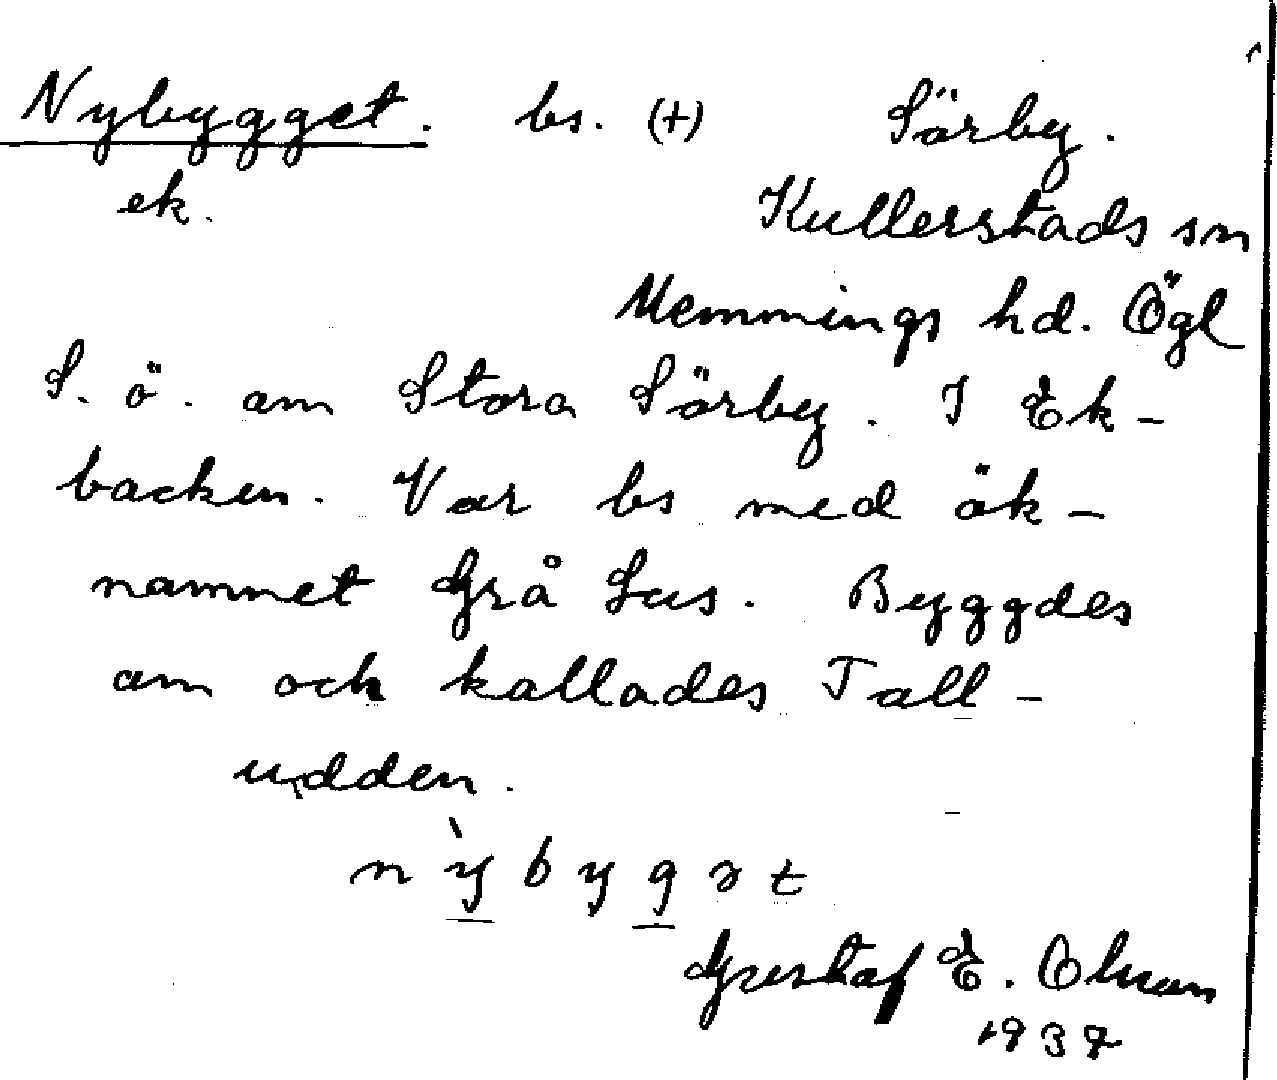 Nybygget. bs. (+) Sörby.
ek. Kullerstads sn
Memmings hd. Ögl
S. ö. om Stora Sörby. I Ek-
backen. Var bs med ök-
namnet Grå Lus. Byggdes
om och kallades Tall-
udden.
nỳbygət
Gustaf E. Olsson
1937